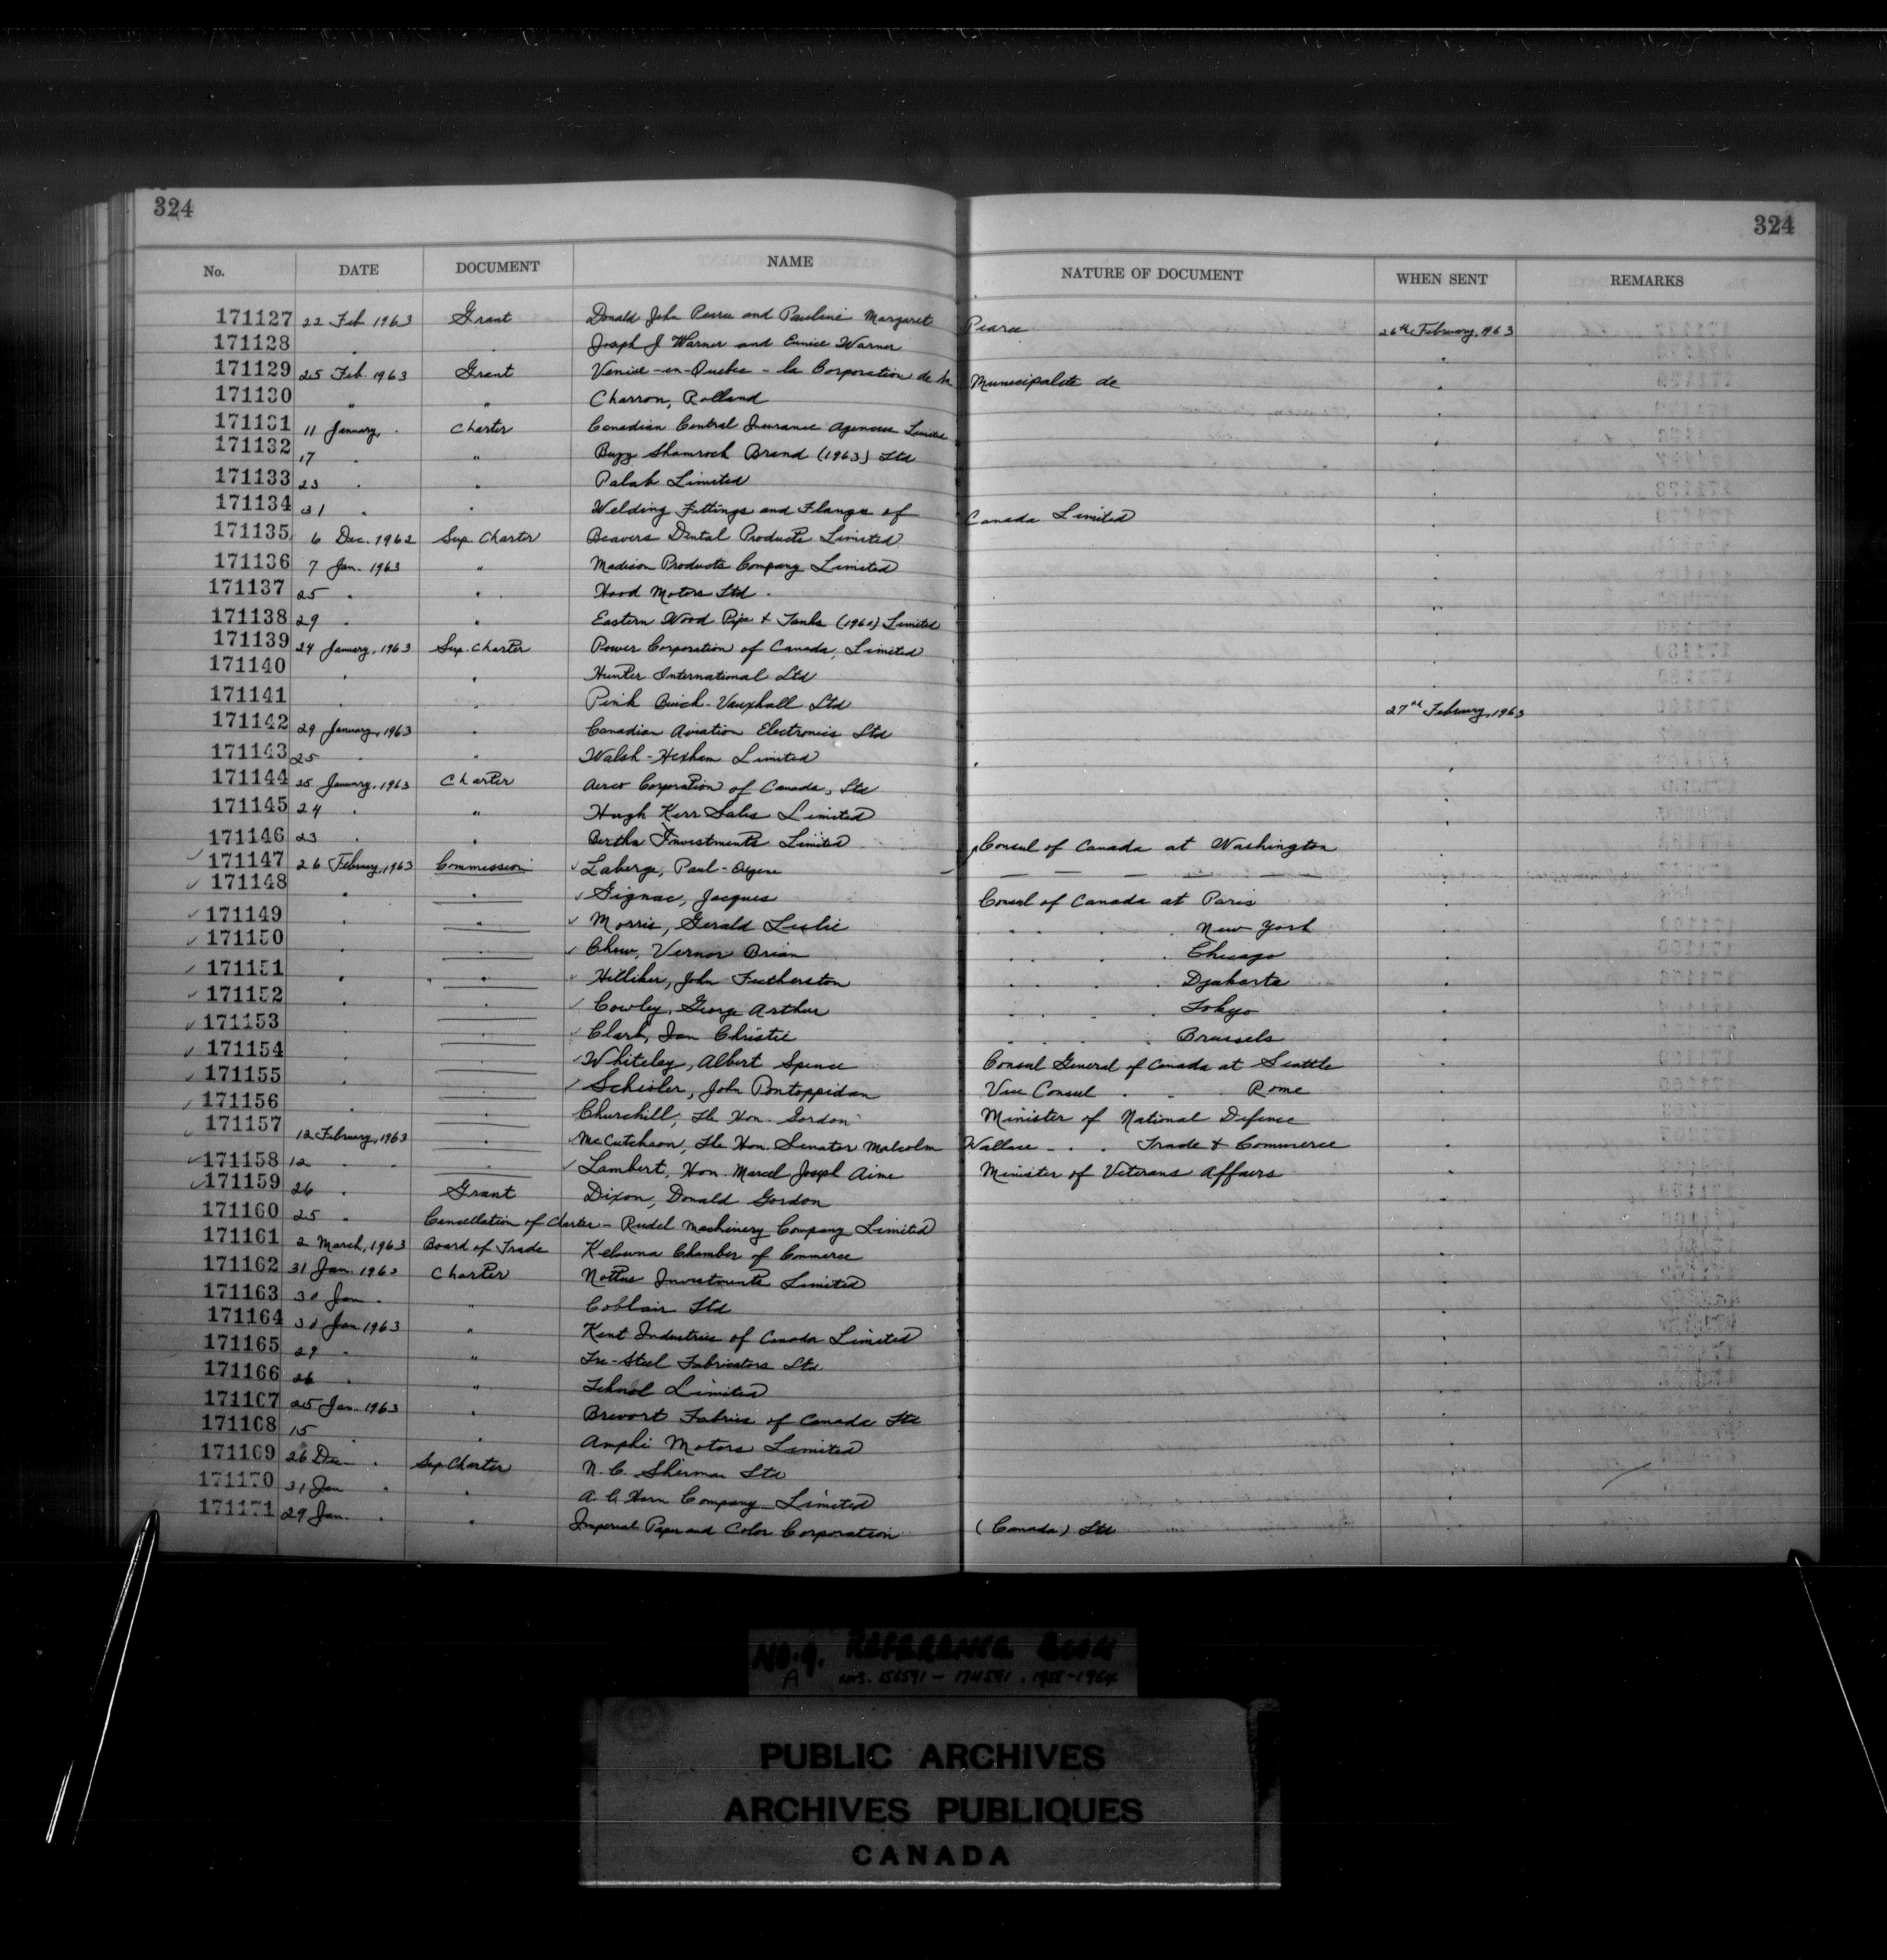 324 324
No. DATE DOCUMENT NAME NATURE OF DOCUMENT WHEN SENT REMARKS
171127 22 Feb 1963 Grant Donald John Pearce and Pauline Margaret Pearce 26th February, 1963
171128 . . Joseph J Warner and Eunice Warner .
171129 25 Feb. 1963 Grant Venise-en-Quebec - la Corporation de la Municipalite de .
171130 " " Charron, Rolland .
171131 11 January . Charter Canadian Central Insurance Agencies Limited .
171132 17 . " Buzz Shamrock Brand (1963) Ltd .
171133 23 . . Palab Limited .
171134 31 . . Welding Fittings and Flanges of Canada Limited .
171135 6 Dec. 1962 Sup. Charter Beavers Dental Products Limited .
171136 7 Jan. 1963 " Madison Products Company Limited .
171137 25 . . Hood Motors Ltd. "
171138 29 . . Eastern Wood Pipe & Tanks (1960) Limited .
171139 24 January, 1963 Sup. Charter Power Corporation of Canada, Limited .
171140 . . Hunter International Ltd .
171141 . . Pink Buick-Vauxhall Ltd 27th February, 1963
171142 29 January, 1963 . Canadian Aviation Electronics Ltd .
171143 25 . . Walsh-Hexham Limited .
171144 25 January, 1963 Charter Aerco Corporation of Canada, Ltd .
171145 24 . " Hugh Kerr Sales Limited .
171146 23 . . Bertha Investments Limited .
171147 26 February, 1963 Commission Laberge, Paul-Eugene Consul of Canada at Washington .
171148 . . Gignac, Jacques Consul of Canada at Paris .
171149 . " Morris, Gerald Leslie . . . . New York .
171150 . . Chew, Vernor Brian . . . . Chicago .
171151 . . Hilliker, John Featherston . . . . Djakarta .
171152 . . Cowley, George Arthur . . . . Tokyo .
171153 . . Clark, Ian Christie . . . . Brussels .
171154 . . Whiteley, Albert Spence Consul General of Canada at Seattle .
171155 . . Schioler, John Pontoppidan Vice Consul . . Rome .
171156 . . Churchill, The Hon. Gordon Minister of National Defence .
171157 12 February, 1963 . McCutcheon, The Hon. Senator Malcolm Wallace - . . Trade & Commerce .
171158 12 . . . Lambert, Hon. Marcel Joseph Aime Minister of Veterans Affairs .
171159 26 . Grant Dixon, Donald Gordon .
171160 25 . Cancellation of Charter - Rudel Machinery Company Limited .
171161 2 March, 1963 Board of Trade Kelowna Chamber of Commerce .
171162 31 Jan. 1963 Charter Investments Limited .
171163 30 Jan. " Coblair Ltd .
171164 30 Jan. 1963 " Kent Industries of Canada Limited .
171165 29 . " Tre-Steel Fabricators Ltd .
171166 26 . " Limited .
171167 25 Jan. 1963 . Brevort Fabrics of Canada Ltd .
171168 15 . . Amphi Motors Limited .
171169 26 Dec . Sup. Charter N. C. Sherman Ltd .
171170 31 Jan . . A. C. Horn Company Limited .
171171 29 Jan. . . Imperial Paper and Color Corporation (Canada) Ltd .
No. 9. REFERENCE BOOK
A NOS. 156591 - 174591 . 1958-1964
PUBLIC ARCHIVES
ARCHIVES PUBLIQUES
CANADA